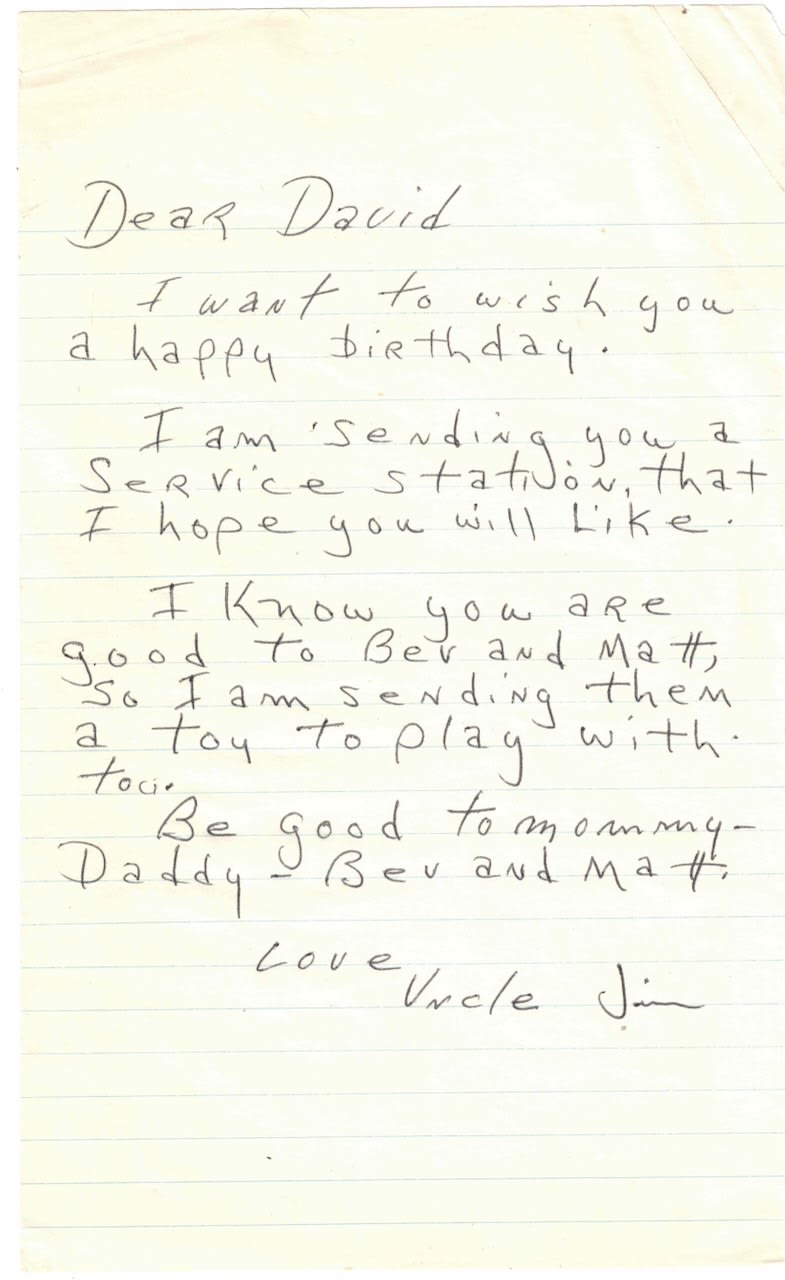 Dear David
I want to wish you
a happy birthday.
I am sending you a
Service station, that
I hope you will Like.
I Know you are
good to Bev and Matt,
so I am sending them
a toy to play with.
too.
Be good to mommy-
Daddy - Bev and Matt.
Love
Uncle Jim